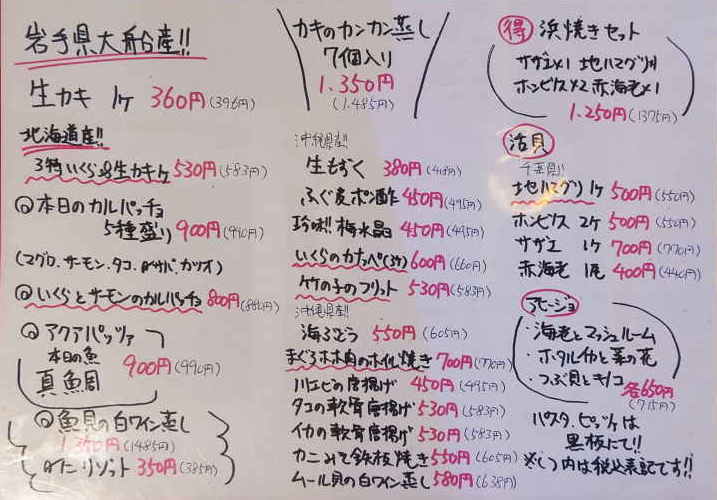 岩手県大船産!!
生カキ 1ケ 360円(396円)
北海道産!!
3特いくら&生カキ1ケ 530円(583円)
本日のカルパッチョ
5種盛り 900円(990円)
(マグロ.サーモン.タコ.〆サバ.カツオ)
いくらとサーモンのカルパッチョ 800円(880円)
アクアパッツァ
本日の魚
真鯛 900円(990円)
魚貝の白ワイン蒸し
1.350円(1485円)
リゾット 350円(385円)
カキのカンカン蒸し
7個入り
1.350円
(1.485円)
沖縄県産!!
生もずく 380円(418円)
ふぐ皮ポン酢 450円(495円)
珍味!! 梅水晶 450円(495円)
いくらのカナッペ(3ケ) 600円(660円)
竹の子のフリット 530円(583円)
沖縄県産!!
海ぶどう 550円(605円)
まぐろホホ肉のホイル焼き 700円(770円)
川エビの唐揚げ 450円(495円)
タコの軟骨唐揚げ 530円(583円)
イカの軟骨唐揚げ 530円(583円)
カニみそ鉄板焼き 550円(605円)
ムール貝の白ワイン蒸し 580円(638円)
得 浜焼きセット
サザエ×1 地ハマグリ×1
ホンビノス×2 赤海老×1
1.250円(1375円)
活貝
千葉県!!
地ハマグリ 1ケ 500円(550円)
ホンビノス 2ケ 500円(550円)
サザエ 1ケ 700円(770円)
赤海老 1尾 400円(440円)
アヒージョ
・海老とマッシュルーム
・ホタルイカと菜の花
・つぶ貝とキノコ
各650円
(715円)
パスタ.ピッツァは
黒板にて!!
※( )内は税込表記です!!